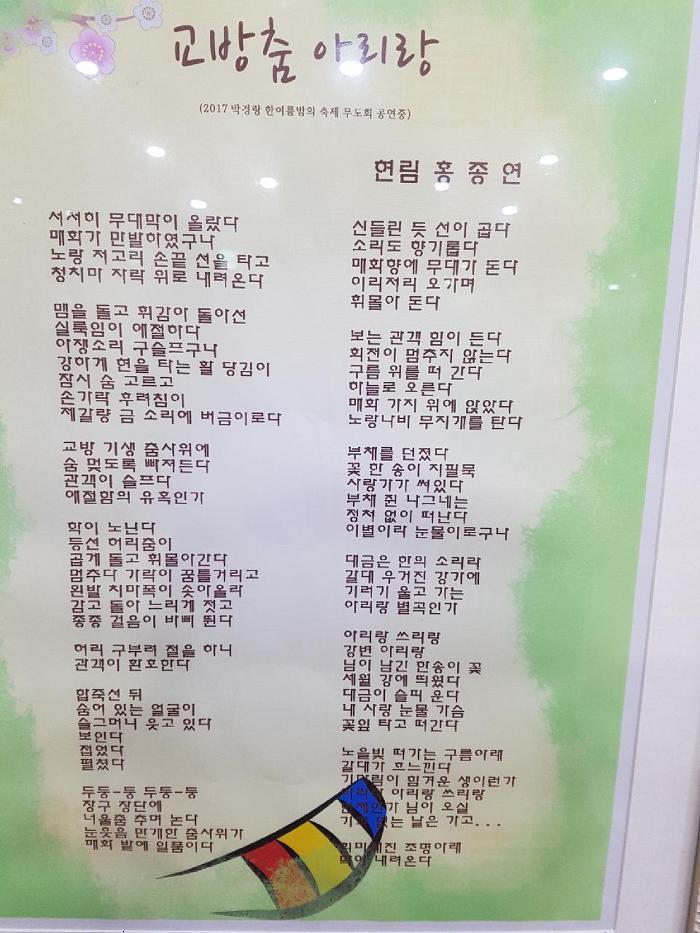 교방춤 아리랑
(2017 박경랑 한여름밤의 축제 무도회 공연중)
현림 홍종연
서서히 무대막이 올랐다
매화가 만발하였구나
노랑 저고리 손끝 선을 타고
청치마 자락 위로 내려온다
맴을 돌고 휘감아 돌아선
실룩임이 애절하다
아쟁소리 구슬프구나
강하게 현을 타는 활 당김이
잠시 숨 고르고
손가락 후려침이
제갈량 금 소리에 버금이로다
교방 기생 춤사위에
숨 멎도록 빠져든다
관객이 슬프다
애절함의 유혹인가
학이 노닌다
등선 허리춤이
곱게 돌고 휘몰아간다
멈추다 가락이 꿈틀거리고
왼발 치마폭이 솟아올라
감고 돌아 느리게 젓고
종종 걸음이 바삐 뛴다
허리 구부려 절을 하니
관객이 환호한다
합죽선 뒤
숨어 있는 얼굴이
슬그머니 웃고 있다
보인다
접었다
펼쳤다
두둥-둥 두둥-둥
장구 장단에
너울춤 추며 논다
눈웃음 만개한 춤사위가
매화 밭에 일품이다
신들린 듯 선이 곱다
소리도 향기롭다
매화향에 무대가 돈다
이리저리 오가며
휘몰아 돈다
보는 관객 힘이 든다
회전이 멈추지 않는다
구름 위를 떠 간다
하늘로 오른다
매화 가지 위에 앉았다
노랑나비 무지개를 탄다
부채를 던졌다
꽃 한 송이 지필묵
사랑가가 써있다
부채 쥔 나그네는
정처 없이 떠난다
이별이라 눈물이로구나
대금은 한의 소리라
갈대 우거진 강가에
기러기 울고 가는
아리랑 별곡인가
아리랑 쓰리랑
강변 아리랑
님이 남긴 한송이 꽃
세월 강에 띄웠다
대금이 슬피 운다
내 사랑 눈물 가슴
꽃잎 타고 떠간다
노을빛 떠가는 구름아래
갈대가 흐느낀다
기다림이 힘겨운 생이런가
아리랑 아리랑 쓰리랑
언제인가 님이 오실
없는 날은 가고...
조명아래
막이 내려온다